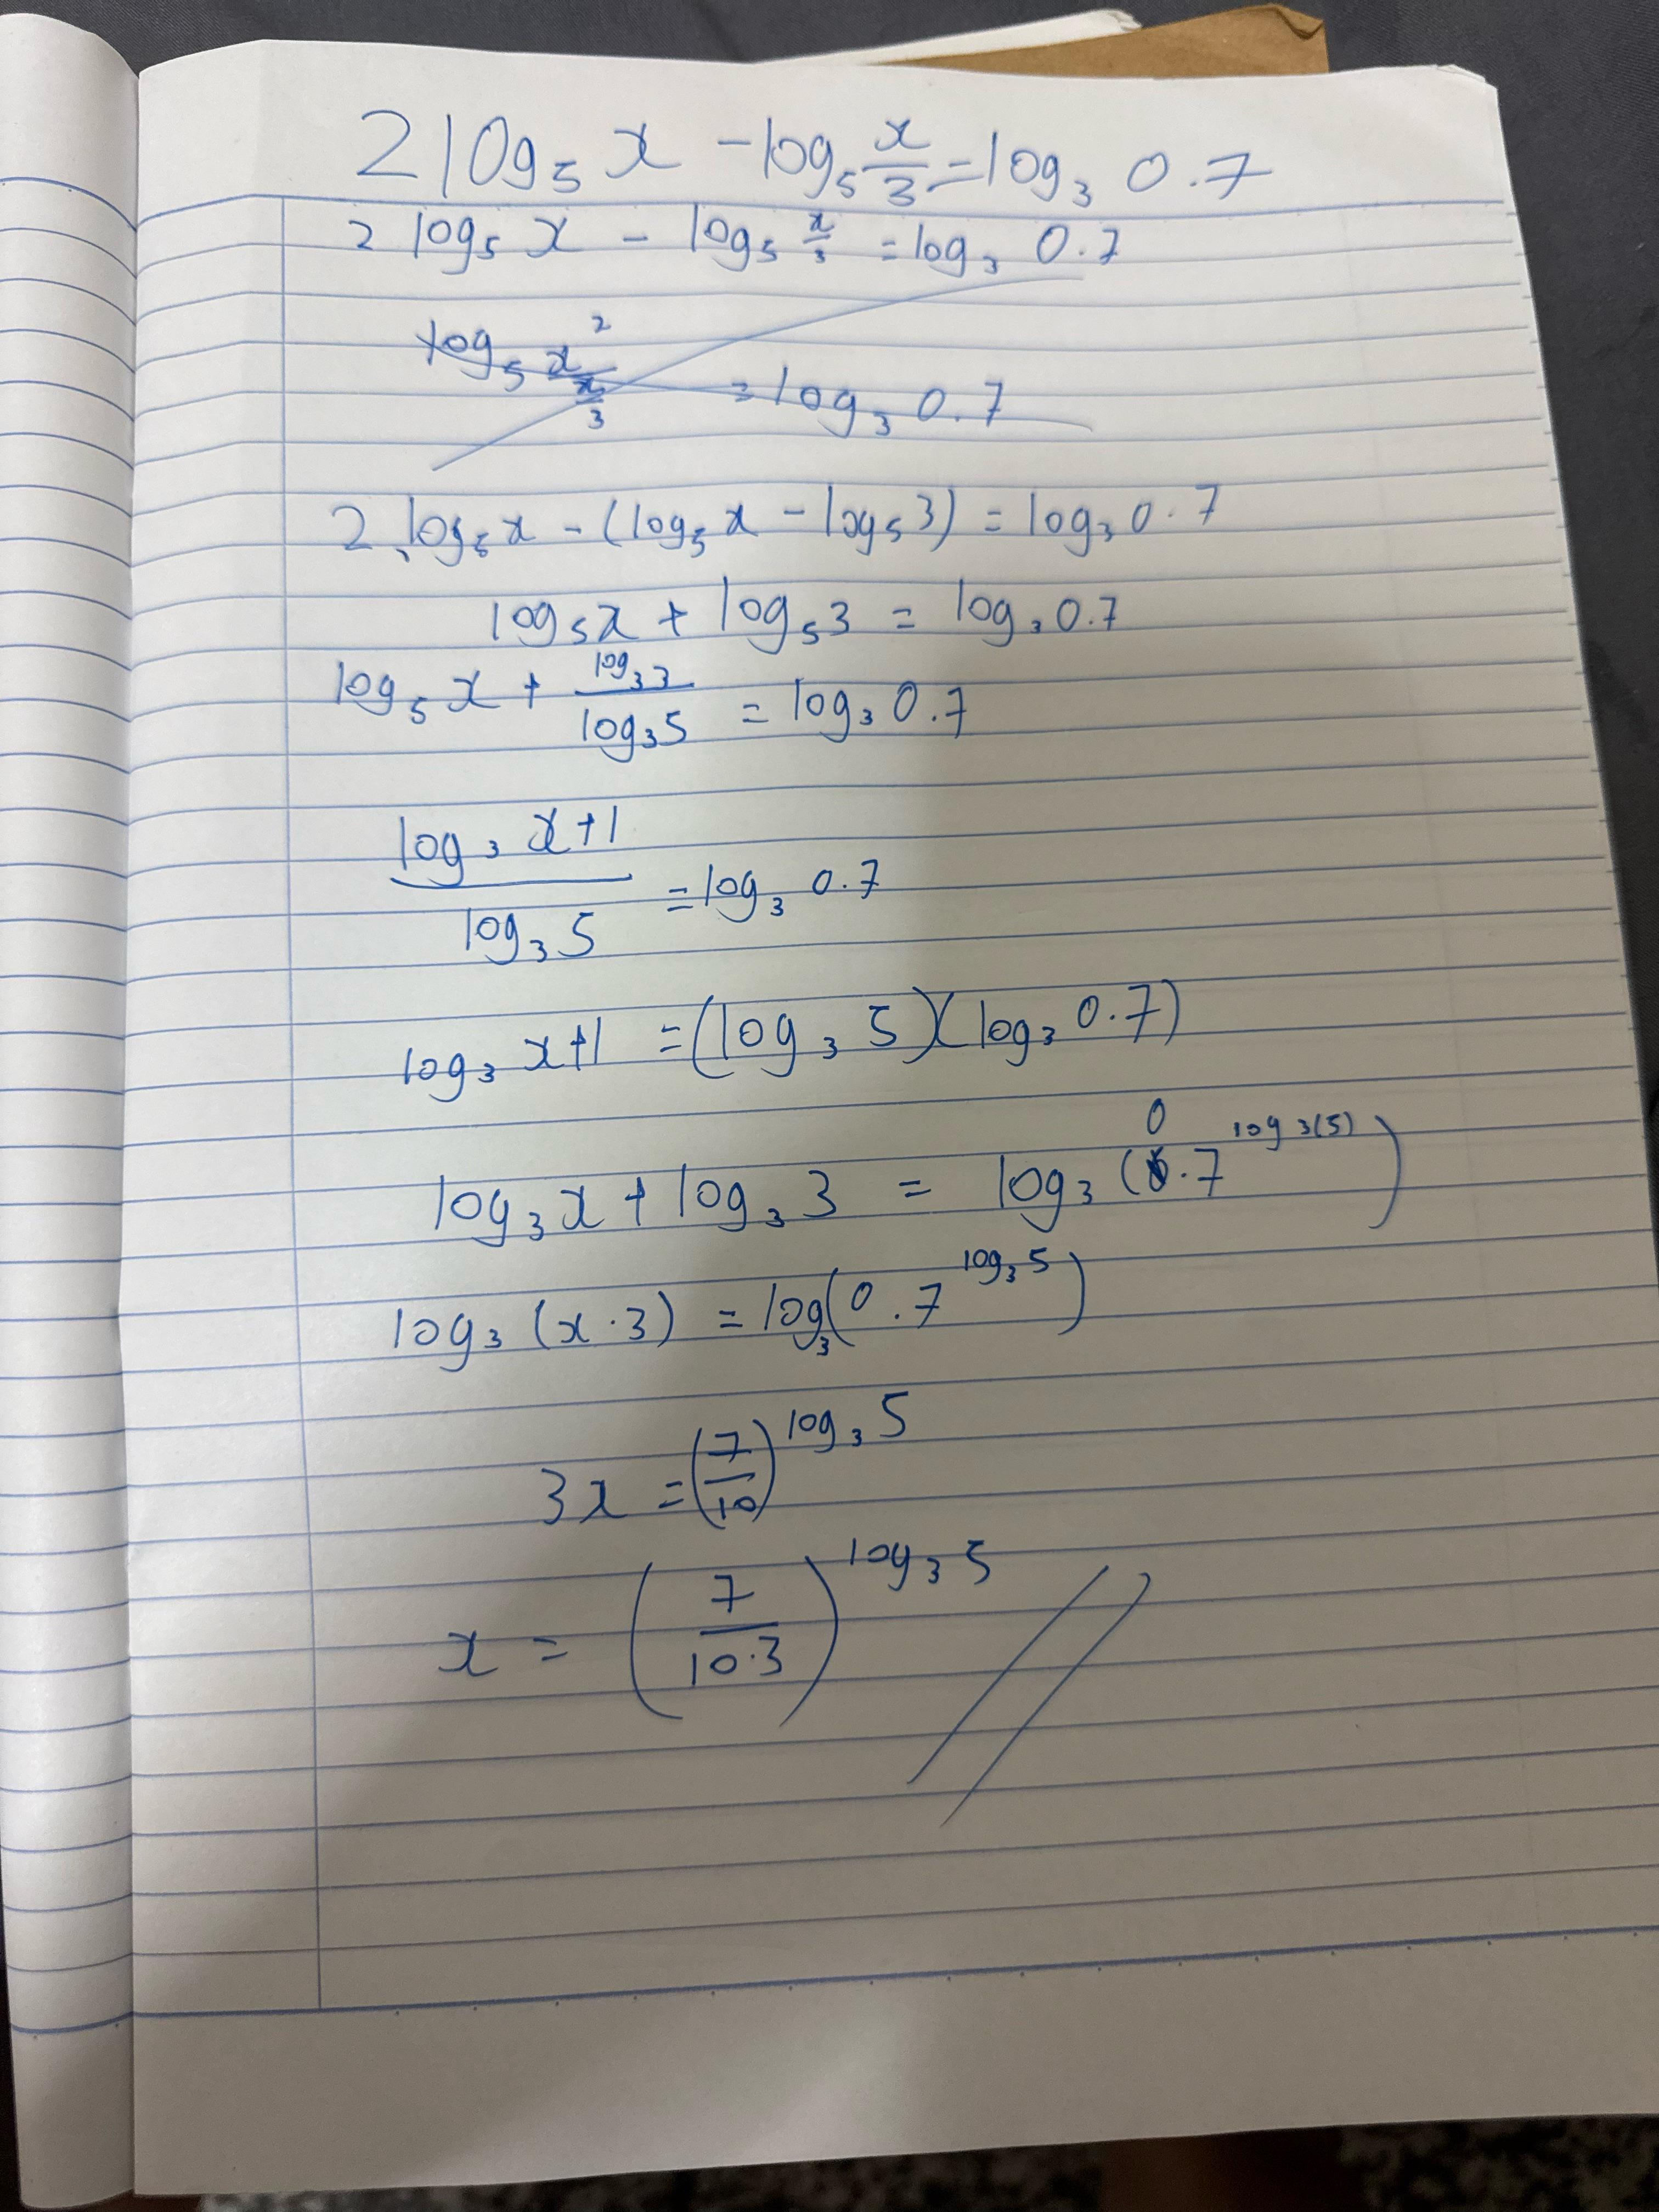 2log₅ x − log₅ x/3 = log₃ 0.7
2 log₅ x − log₅ x/3 = log₃ 0.7
log₅ x²/(x/3) = log₃ 0.7
2 log₅ x − (log₅ x − log₅ 3) = log₃ 0.7
log₅ x + log₅ 3 = log₃ 0.7
log₅ x + (log₃ 3)/(log₃ 5) = log₃ 0.7
(log₃ x+1)/(log₃ 5) = log₃ 0.7
log₃ x+1 = (log₃ 5)(log₃ 0.7)
log₃ x + log₃ 3 = log₃ (0.7^(log 3(5)))
log₃ (x·3) = log₃(0.7^(log₃ 5))
3x = (7/10)^(log₃ 5)
x = (7/(10·3))^(log₃ 5)